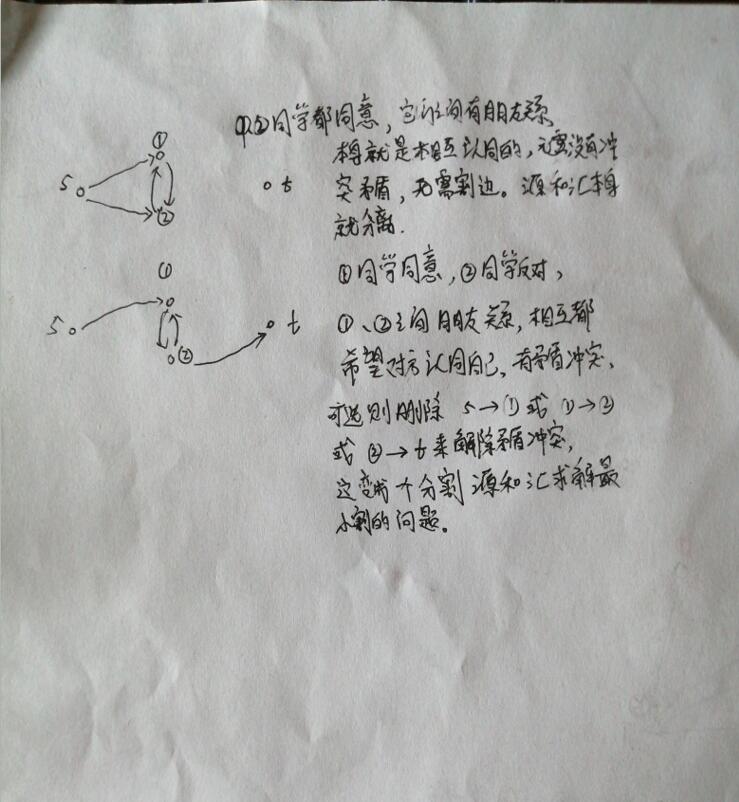 ①②同学都同意，它们之间有朋友关系，
本身就是相互认同的，完全没有冲
突矛盾，无需割边。源和汇本身
就分离.
①
S
②
t
①同学同意，②同学反对，
①、②之间朋友关系，相互都
希望对方认同自己，有矛盾冲突，
可选则删除 S→①或①→②
或②→t来解除矛盾冲突，
这变成个分割源和汇求解最
小割的问题。
①
S
②
t